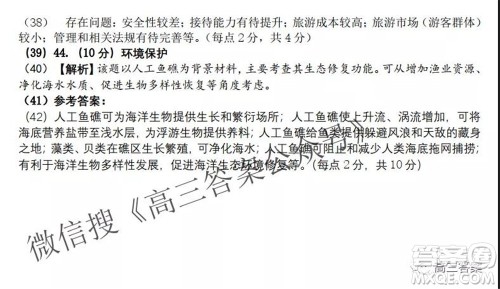 （38） 存在问题：安全性较差；接待能力有待提升；旅游成本较高；旅游市场（游客群体）
较小；管理和相关法规有待完善等。（每点2分，共4分）
（39）44.（10分）环境保护
（40）【解析】该题以人工鱼礁为背景材料，主要考查其生态修复功能。可从增加渔业资源、
净化海水水质、促进生物多样性恢复等角度考虑。
（41）参考答案：
（42）人工鱼礁可为海洋生物提供生长和繁衍场所；人工鱼礁使上升流、涡流增加，可将
海底营养盐带至浅水层，为浮游生物提供养料；人工鱼礁给鱼类提供躲避风浪和天敌的藏身
之地；藻类、贝类在礁区生长繁殖，可净化海水；人工鱼礁可阻止和减少人类海底拖网捕捞；
有利于海洋生物多样性发展，促进海洋生态环境修复等。（每点2分，共10分）
微信搜《高三答案公众号》
高三答案